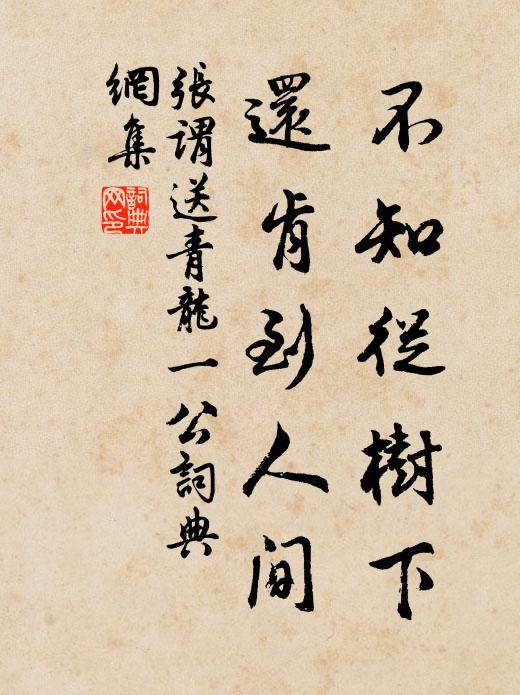 不知從樹下
還肯到人间
張謂送青龍一公詞典
網集
詞典
网印